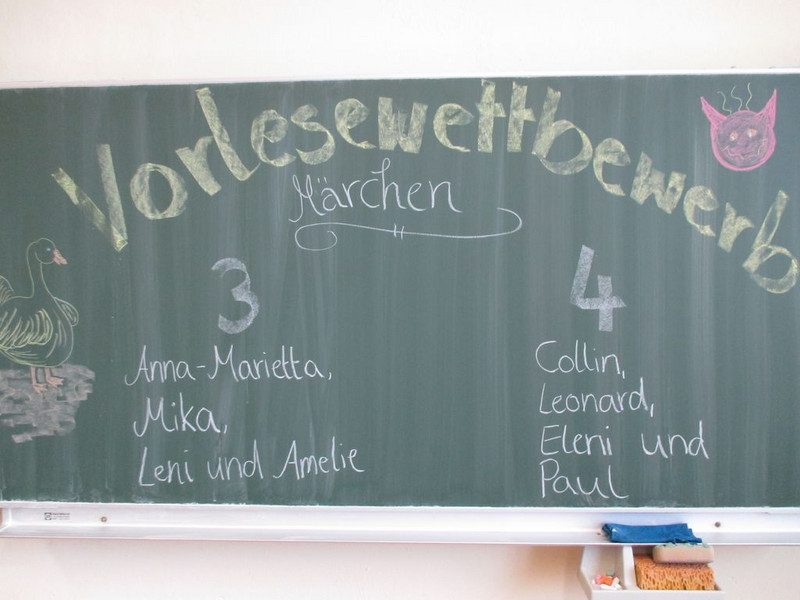 Vorlesewettbewerb
Märchen
3
Anna-Marietta,
Mika,
Leni und Amelie
4
Collin,
Leonard,
Eleni und
Paul